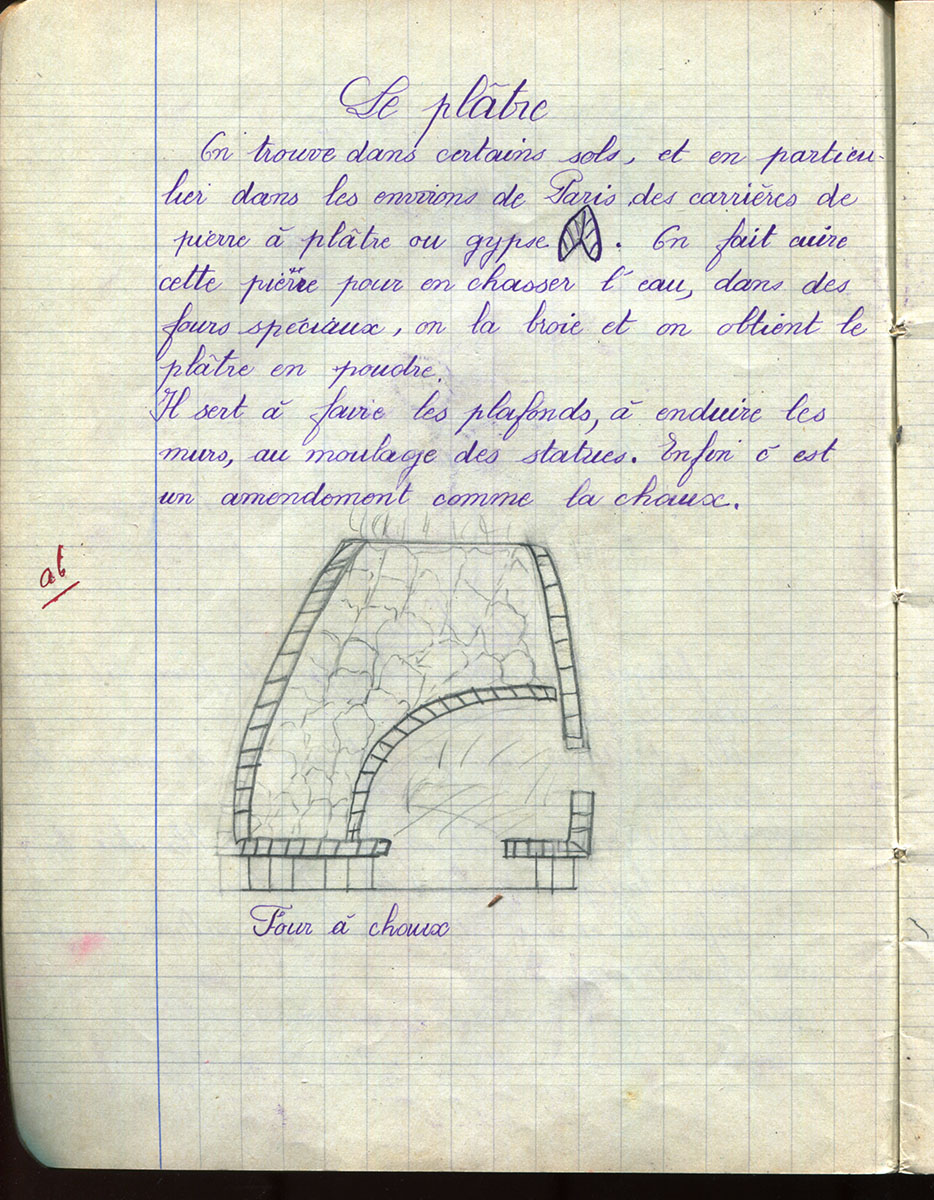 Le plâtre
On trouve dans certains sols, et en particu-
lier dans les environs de Paris des carrières de
pierre à plâtre ou gypse. On fait cuire
cette pierre pour en chasser l'eau, dans des
fours spéciaux, on la broie et on obtient le
plâtre en poudre.
Il sert à faire les plafonds, à enduire les
murs, au moulage des statues. Enfin c'est
un amendement comme la chaux.
Four à chaux